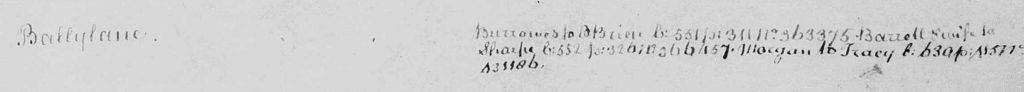 Ballylane.
Burrowes to O'Brien b: 551 p: 311 No. 363375. Barrett & wife to
Sharpe b: 552 p: 326 No. 366457. Morgan to Tracy b: 639 p: